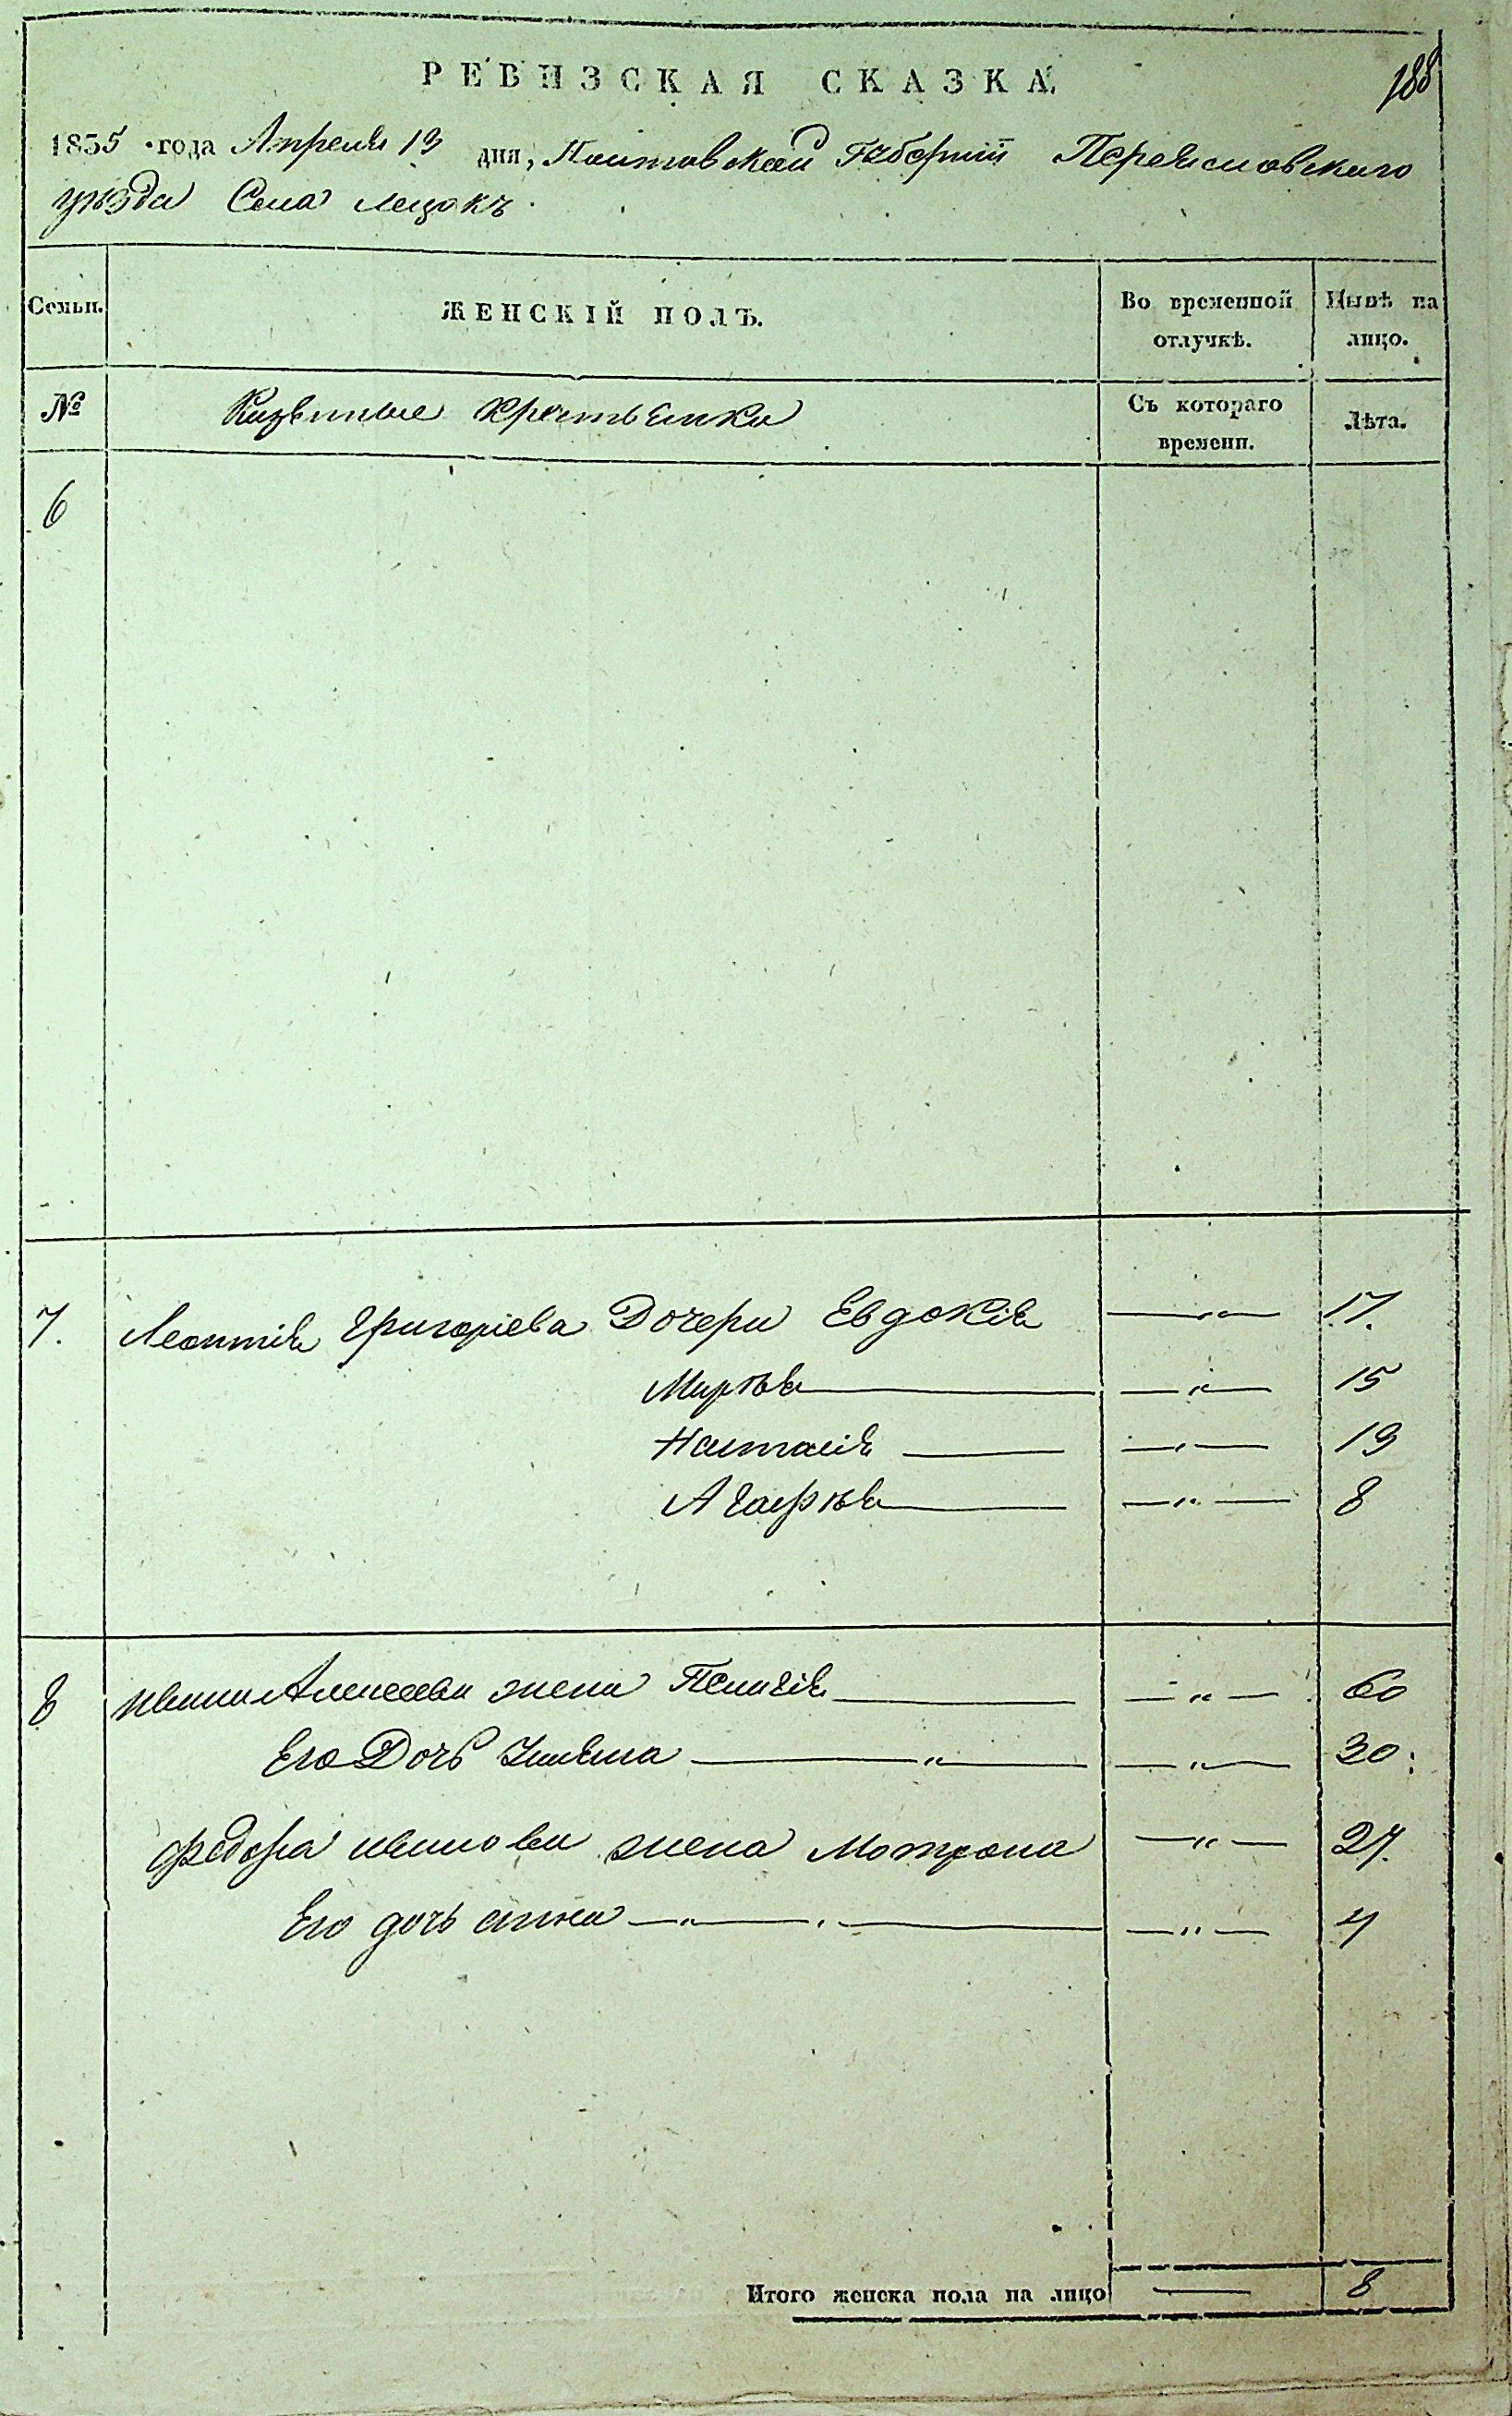 188
РЕВИЗСКАЯ СКАЗКА.
1855 года Апреля 13 дня, Полтавской Губернии Переяславского
уѣзда Села Лецокъ
Семьи.
ЖЕНСКІЙ ПОЛЪ.
Во временной отлучкѣ.
Нынѣ на лицо.
№
Казенные крестьянки
Съ котораго времени.
Лѣта.
6
7. Леонтія Григоріева Дочери Евдокія — " — 17.
Марѳа — " — 15
Настасія — " — 13
Агафія — " — 8
8 Ивана Алексеева жена Пелагія — " — 60
Его Дочь Ульяна — " — 30
Федора Иванова жена Мотрона — " — 27.
Его дочь Анна — " — 4
Итого женска пола на лицо — 8